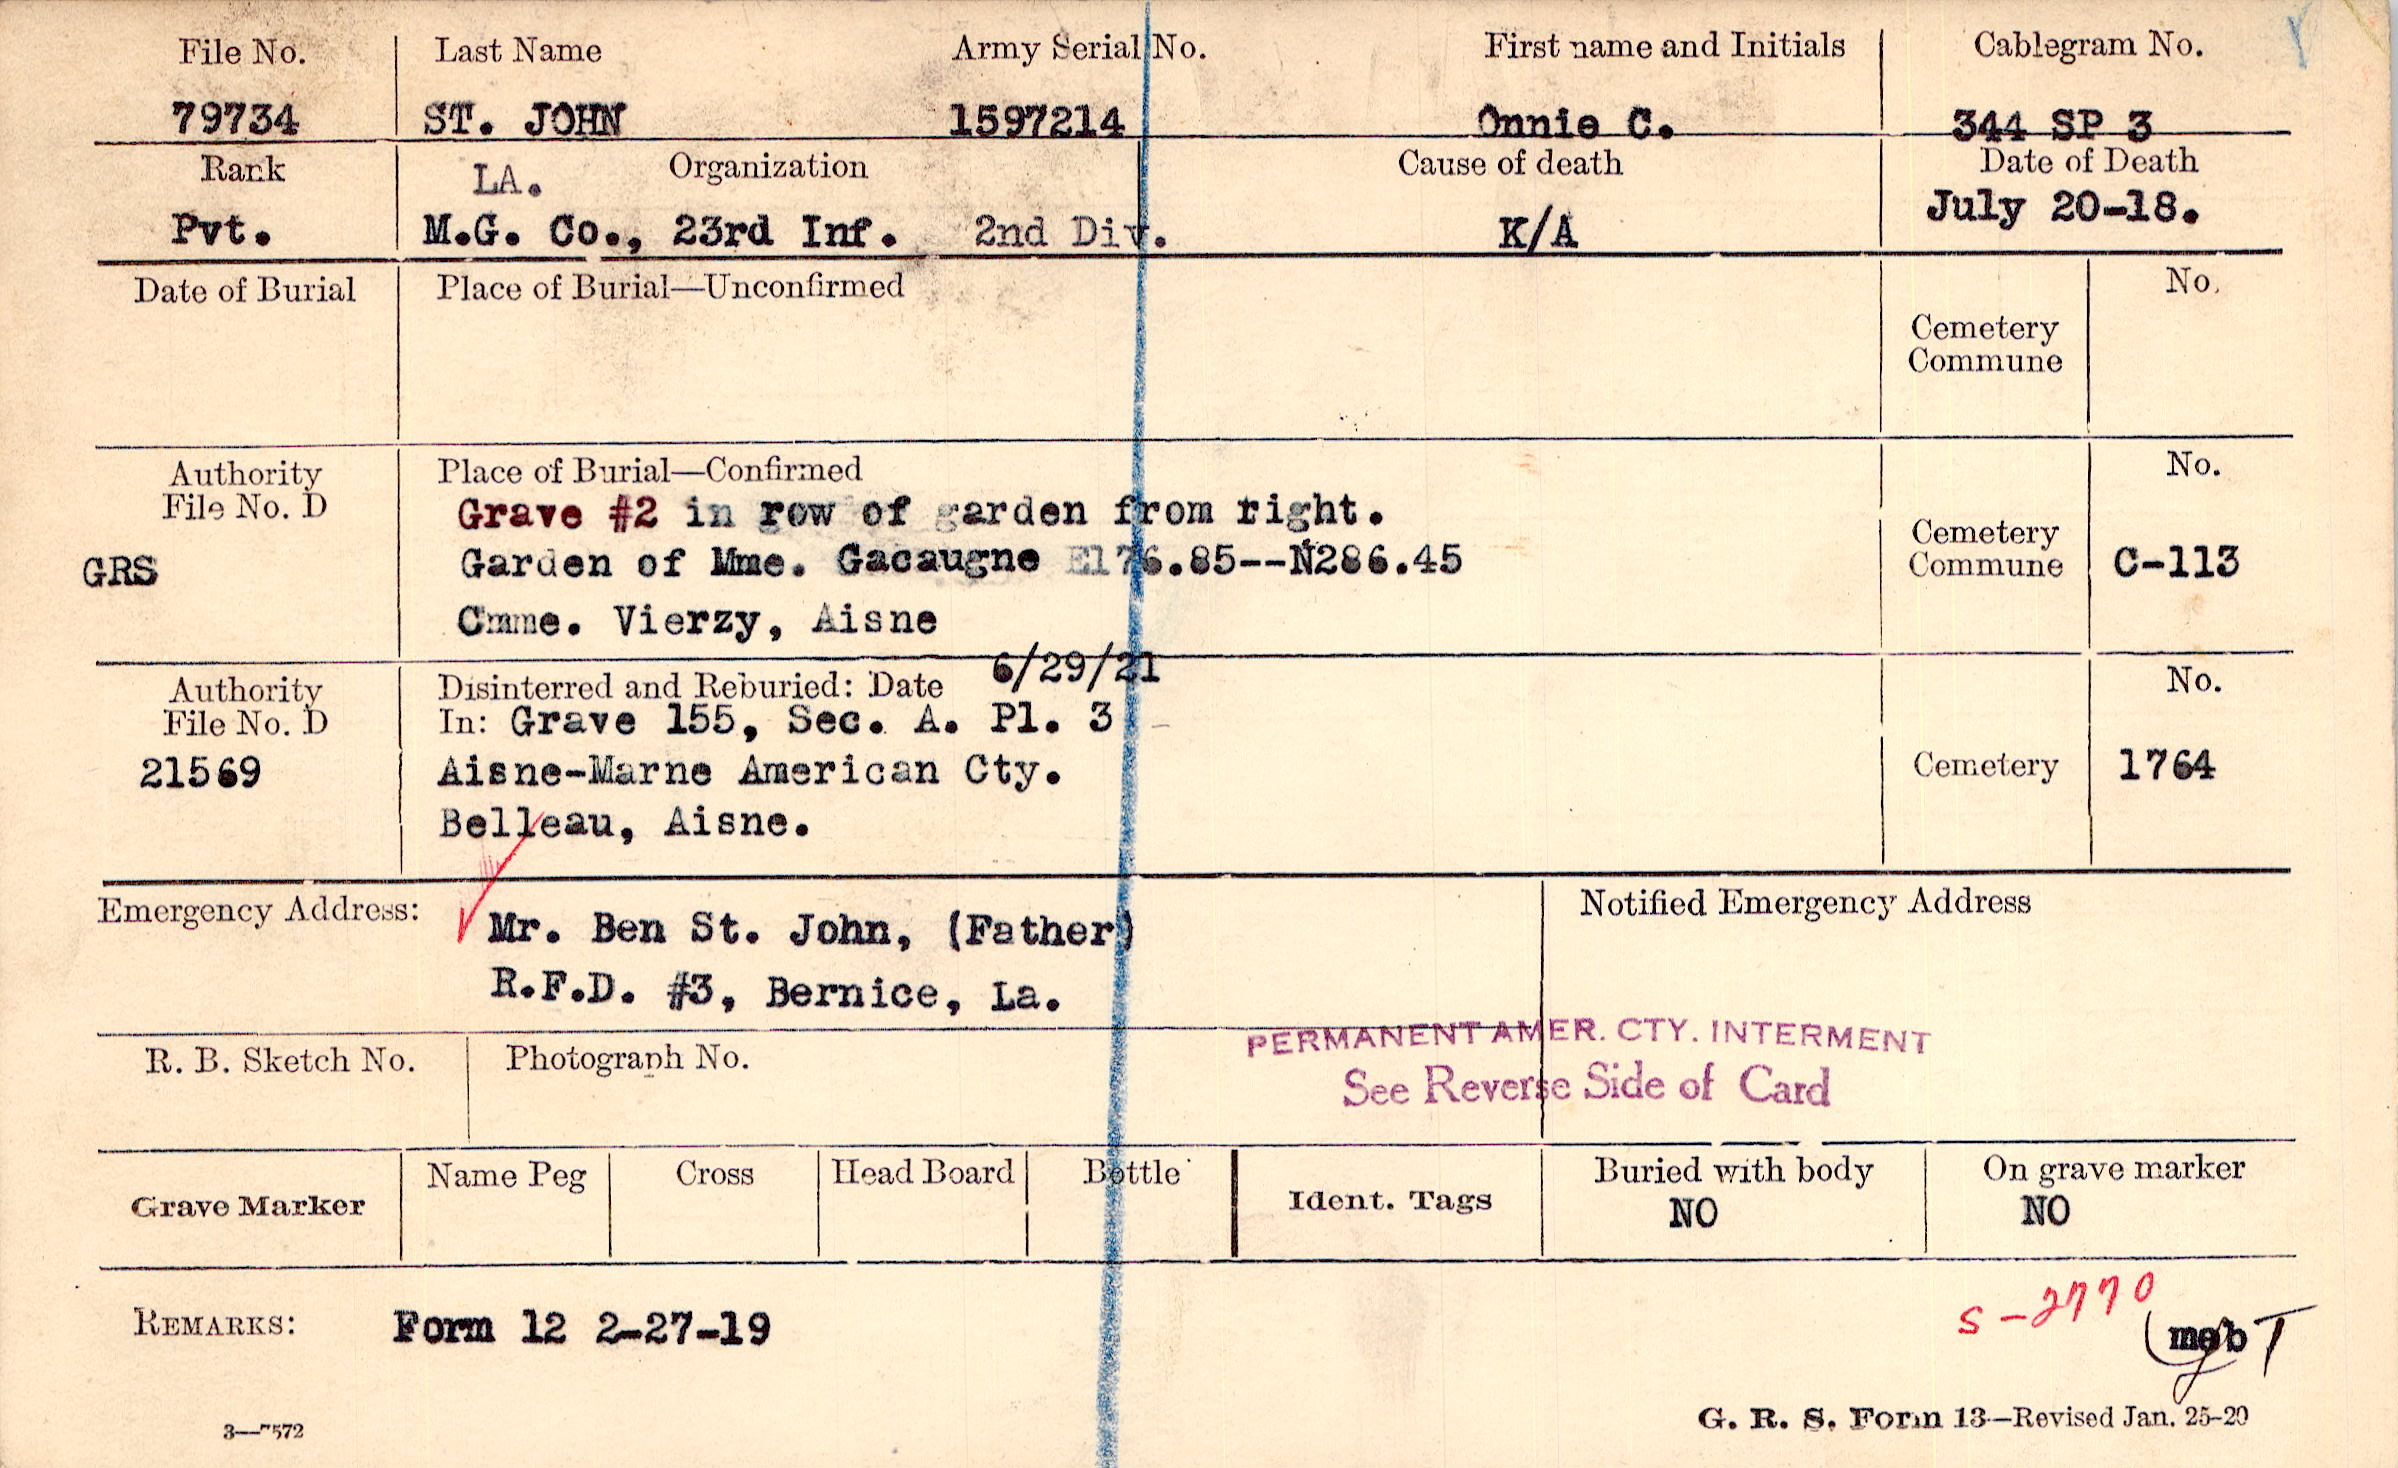 File No. Last Name Army Serial No. First name and Initials Cablegram No.
79734 ST. JOHN 1597214 Onnie C. 344 SP 3
Rank LA. Organization Cause of death Date of Death
Pvt. M.G. Co., 23rd Inf. 2nd Div. K/A July 20-18.
Date of Burial Place of Burial—Unconfirmed No.
Cemetery
Commune
Authority Place of Burial—Confirmed No.
File No. D Grave #2 in row of garden from right.
Cemetery
GRS Garden of Mme. Gacaugne E176.85--N286.45 Commune C-113
Cmme. Vierzy, Aisne
Authority Disinterred and Reburied: Date 6/29/21 No.
File No. D In: Grave 155, Sec. A. Pl. 3
21569 Aisne-Marne American Cty. Cemetery 1764
Belleau, Aisne.
Emergency Address: Notified Emergency Address
Mr. Ben St. John, (Father)
R.F.D. #3, Bernice, La.
PERMANENT AMER. CTY. INTERMENT
R. B. Sketch No. Photograph No. See Reverse Side of Card
Grave Marker Name Peg Cross Head Board Bottle Ident. Tags Buried with body On grave marker
NO NO
S-2770
REMARKS: Form 12 2-27-19
3—7572 G. R. S. Form 13—Revised Jan. 25-20